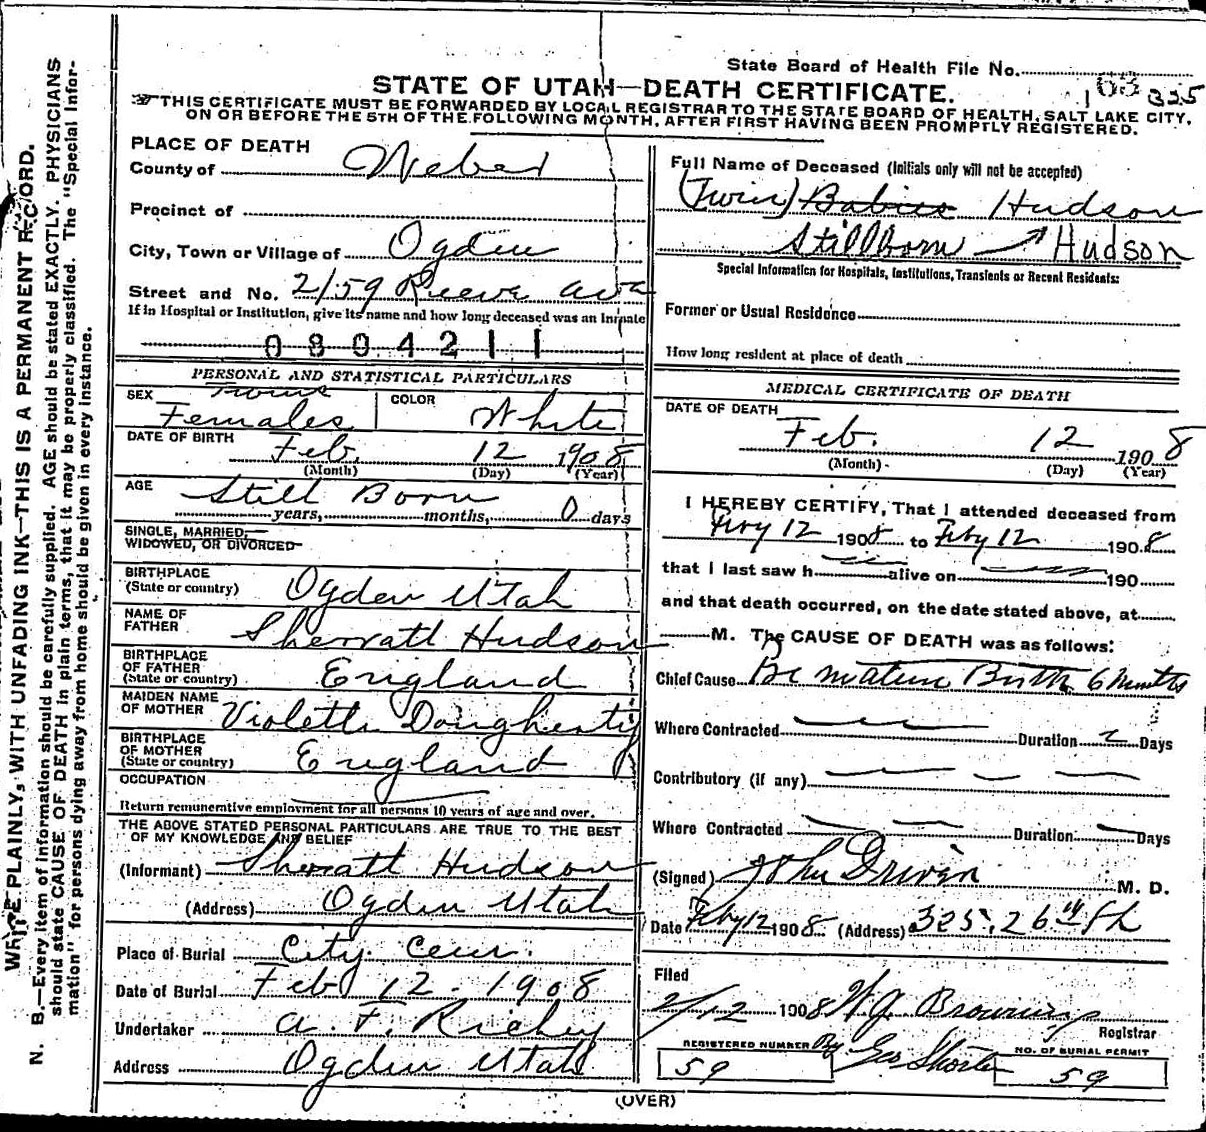 State Board of Health File No. 325
STATE OF UTAH—DEATH CERTIFICATE.
THIS CERTIFICATE MUST BE FORWARDED BY LOCAL REGISTRAR TO THE STATE BOARD OF HEALTH, SALT LAKE CITY,
ON OR BEFORE THE 5TH OF THE FOLLOWING MONTH, AFTER FIRST HAVING BEEN PROMPTLY REGISTERED.
PLACE OF DEATH
County of Weber
Precinct of
City, Town or Village of Ogden
Street and No. 2159 Reeve ave
If in Hospital or Institution, give its name and how long deceased was an Inmate
0804211
PERSONAL AND STATISTICAL PARTICULARS
SEX Twins
Females COLOR White
DATE OF BIRTH Feb 12 1908
(Month) (Day) (Year)
AGE Still Born
years, months, 0 days
SINGLE, MARRIED,
WIDOWED, OR DIVORCED
BIRTHPLACE
(State or country) Ogden Utah
NAME OF
FATHER Sherratt Hudson
BIRTHPLACE
OF FATHER
(State or country) England
MAIDEN NAME
OF MOTHER Violetta Dougherty
BIRTHPLACE
OF MOTHER
(State or country) England
OCCUPATION
Return remunerative employment for all persons 10 years of age and over.
THE ABOVE STATED PERSONAL PARTICULARS ARE TRUE TO THE BEST
OF MY KNOWLEDGE AND BELIEF
(Informant) Sherratt Hudson
(Address) Ogden Utah
Place of Burial City Cem.
Date of Burial Feb 12 - 1908
Undertaker A. F. Richey
Address Ogden Utah
Full Name of Deceased (Initials only will not be accepted)
(Twin) Babies Hudson
Stillborn Hudson
Special Information for Hospitals, Institutions, Transients or Recent Residents:
Former or Usual Residence
How long resident at place of death
MEDICAL CERTIFICATE OF DEATH
DATE OF DEATH
Feb. 12 1908
(Month) (Day) (Year)
I HEREBY CERTIFY, That I attended deceased from
Feby 12 1908 to Feby 12 1908
that I last saw h alive on 190
and that death occurred, on the date stated above, at
M. The CAUSE OF DEATH was as follows:
Chief Cause Premature Birth 6 Months
Where Contracted Duration Days
Contributory (if any)
Where Contracted Duration Days
(Signed) John Driver M. D.
Date Feby 12 1908 (Address) 325, 26th St
Filed
2/12 1908 W. J. Browning
Registrar
By Geo Shorten
REGISTERED NUMBER
59
NO. OF BURIAL PERMIT
59
(OVER)
WRITE PLAINLY, WITH UNFADING INK—THIS IS A PERMANENT RECORD.
N. B.—Every item of information should be carefully supplied. AGE should be stated EXACTLY. PHYSICIANS
should state CAUSE OF DEATH in plain terms, that it may be properly classified. The "Special Infor-
mation" for persons dying away from home should be given in every instance.